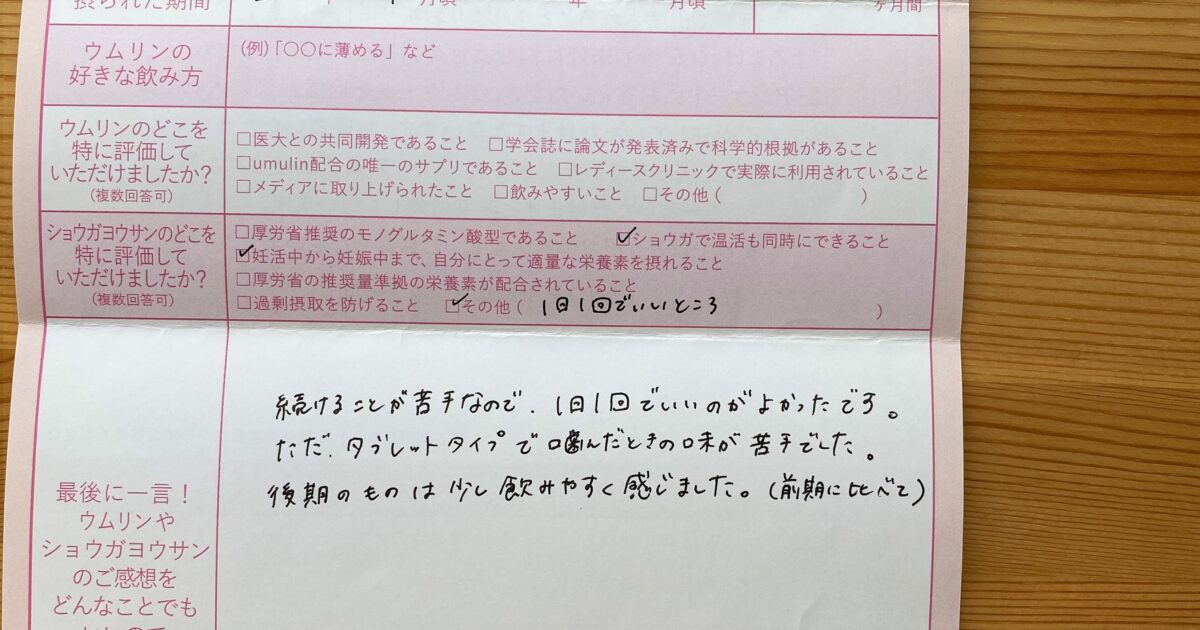 摂られた期間
月頃
年
月頃
ヶ月間
ウムリンの
好きな飲み方
(例)「〇〇に薄める」など
ウムリンのどこを
特に評価して
いただけましたか?
(複数回答可)
□医大との共同開発であること □学会誌に論文が発表済みで科学的根拠があること
□umulin配合の唯一のサプリであること □レディースクリニックで実際に利用されていること
□メディアに取り上げられたこと □飲みやすいこと □その他( )
ショウガヨウサンのどこを
特に評価して
いただけましたか?
(複数回答可)
□厚労省推奨のモノグルタミン酸型であること ☑ショウガで温活も同時にできること
☑妊活中から妊娠中まで、自分にとって適量な栄養素を摂れること
□厚労省の推奨量準拠の栄養素が配合されていること
□過剰摂取を防げること ☑その他( 1日1回でいいところ )
最後に一言!
ウムリンや
ショウガヨウサン
のご感想を
どんなことでも
続けることが苦手なので、1日1回でいいのがよかったです。
ただ、タブレットタイプで噛んだときの味が苦手でした。
後期のものは少し飲みやすく感じました。(前期に比べて)